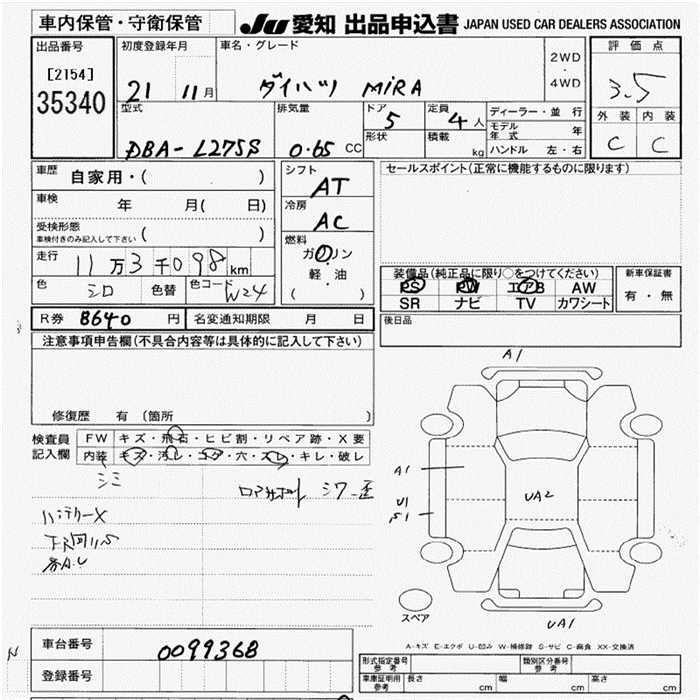 車内保管・守衛保管
JU 愛知 出品申込書 JAPAN USED CAR DEALERS ASSOCIATION
出品番号
[2154]
35340
初度登録年月
21 11月
車名・グレード
ダイハツ MiRA
2WD
・
4WD
評価点
3.5
外装 内装
C C
型式
DBA-L275S
排気量
0.65 CC
ドア
5
形状
定員
4人
積載
kg
ディーラー・並行
モデル年式 年
ハンドル 左・右
車歴 自家用・( )
車検 年 月( 日)
受検形態
車検付きのみ記入して下さい ( )
走行 11万3千098km
色 シロ 色替 色コード W24
シフト
AT
冷房
AC
燃料
ガソリン
・
軽・油
( )
セールスポイント(正常に機能するものに限ります)
装備品(純正品に限り○をつけてください)
PS PW エアB AW
SR ナビ TV カワシート
新車保証書
有・無
R券 8640 円 名変通知期限 月 日
後日品
注意事項申告欄(不具合内容等は具体的に記入して下さい)
修復歴 有 (箇所 )
検査員
記入欄
FW キズ・飛石・ヒビ割・リペア跡・X要
内装 キズ・汚レ・コゲ・穴・スレ・キレ・破レ
シミ
シワ 歪
バッテリーX
A1
A1
U1
S1
UA2
UA1
スペア
A-キズ E-エクボ U-凹み W-補修跡 S-サビ C-腐食 XX-交換済
車台番号 0099368
登録番号
型式指定番号
参考
類別区分番号
参考
車庫証明用
参考
長さ cm 幅 cm 高さ cm